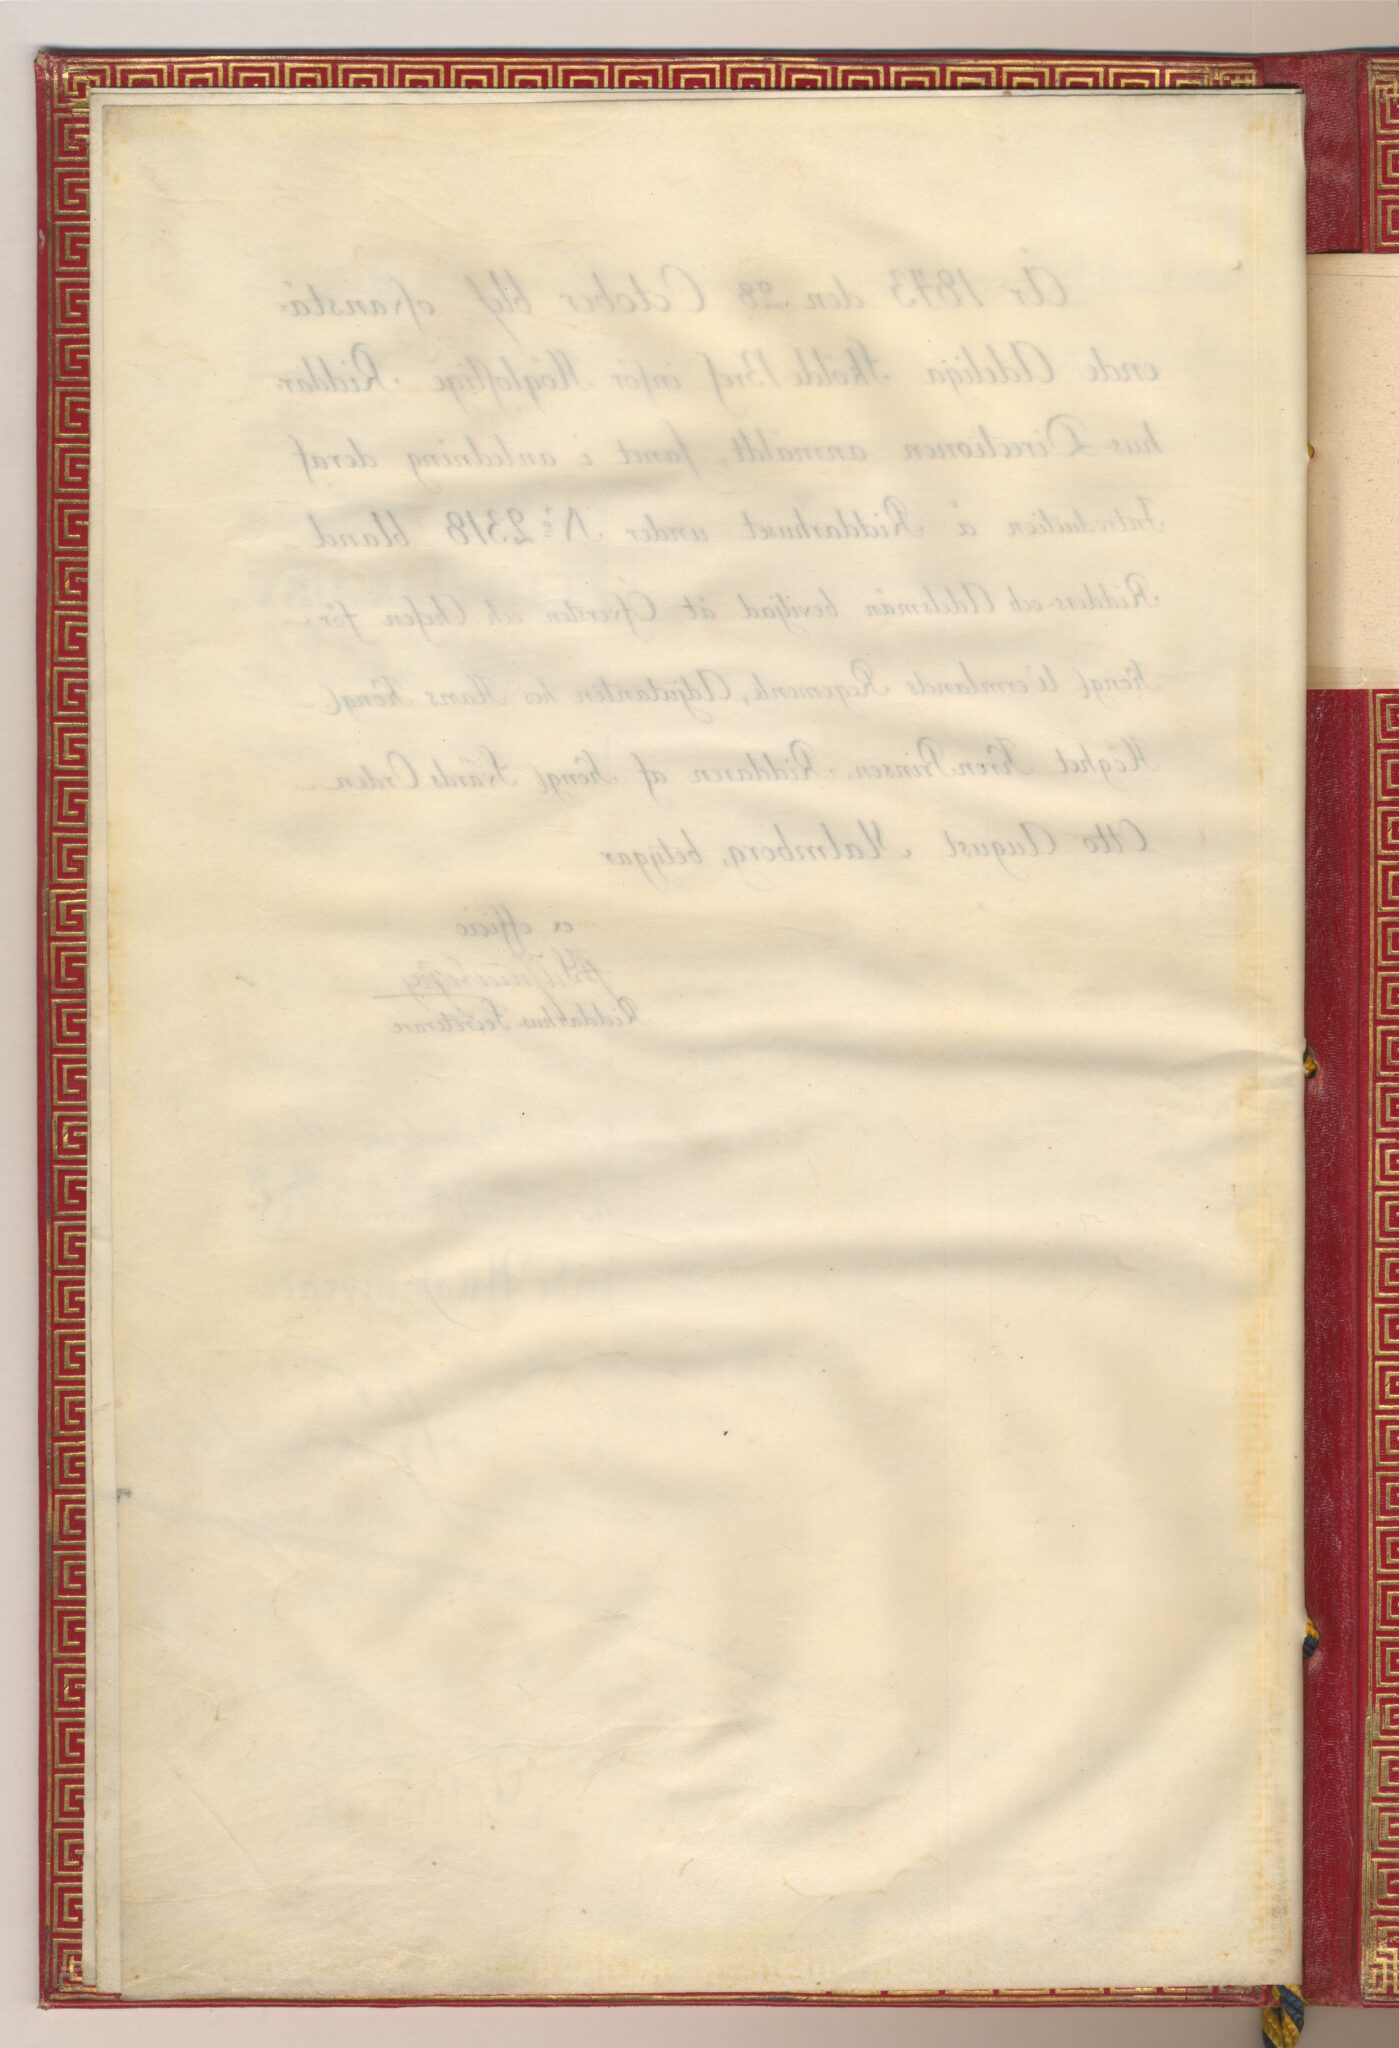 År 1843 den 28 October blef ofvanstå=
ende Adeliga Sköldebref inför Högloflige Riddar
hus-Directionen anmäldt, samt i anledning deraf
Introduction å Riddarhuset under N:o 2318 bland
Ridders- och Adelsmän beviljad åt Öfversten och Chefen för
Kongl Wermlands Regemente, Adjutanten hos Hans Kongl
Höghet KronPrinsen, Riddaren af Kongl Svärds Orden
Otto August Malmborg, betygar
ex officio
Riddarhus-Secreterare